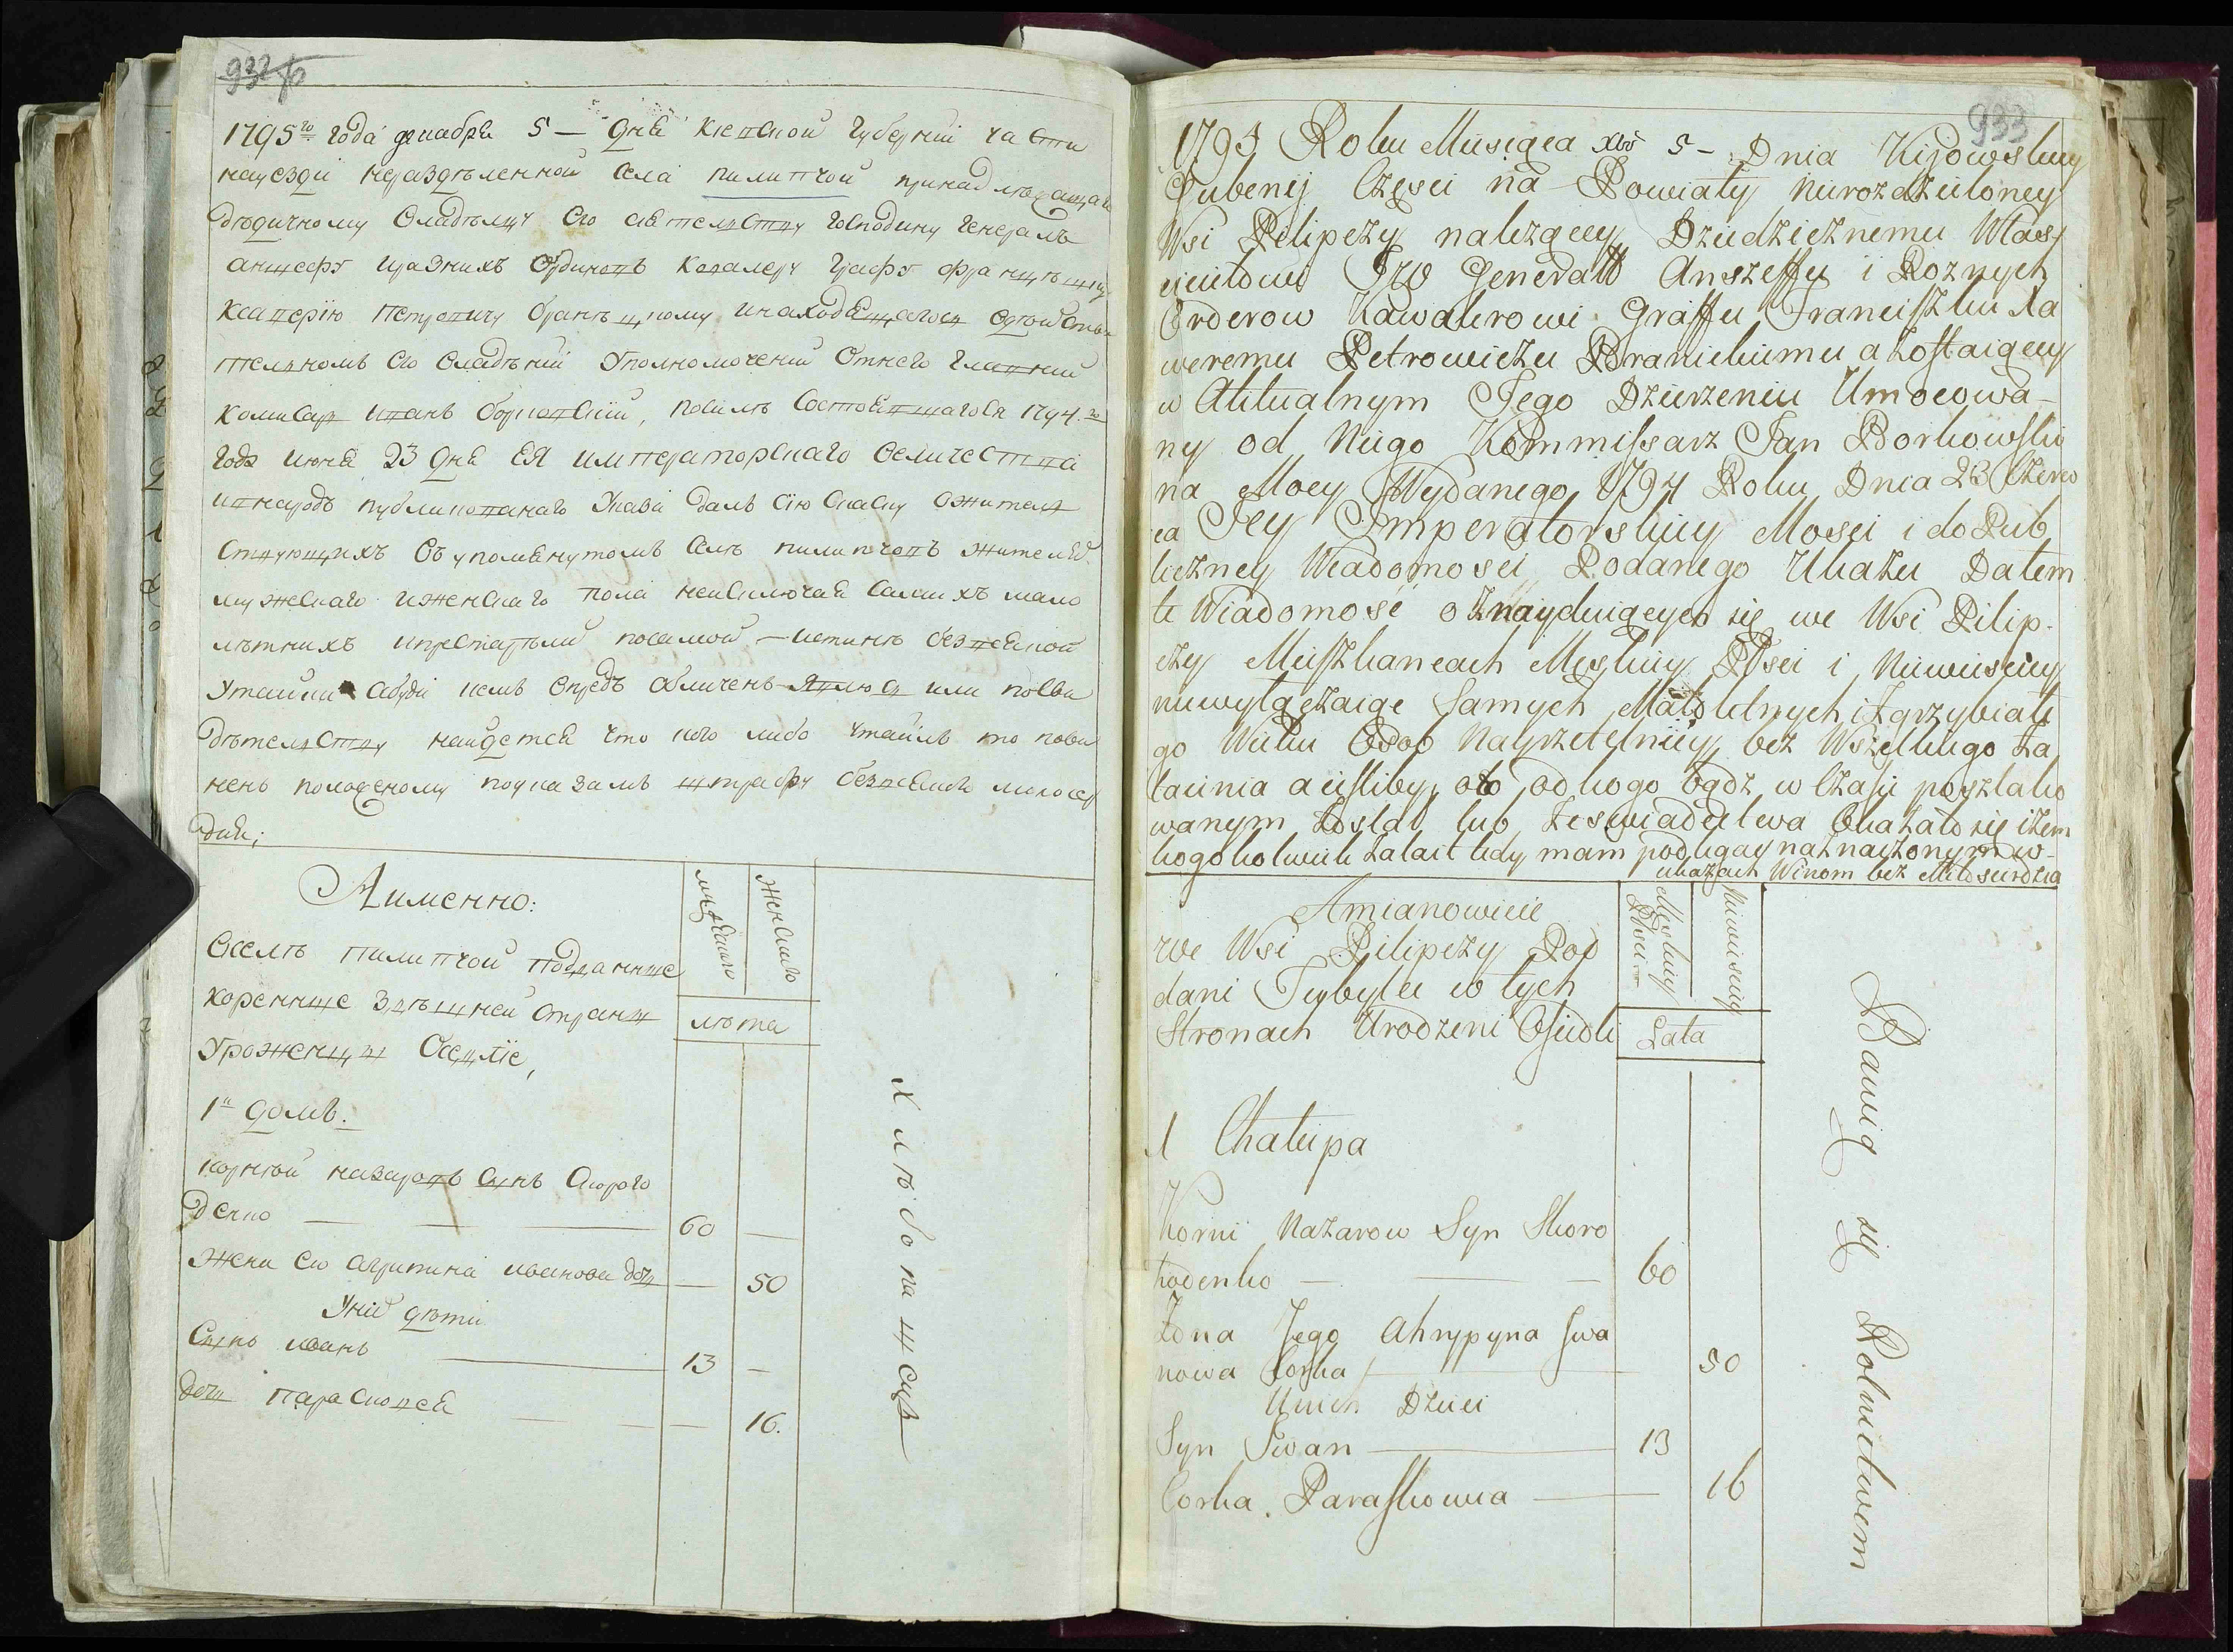 932 об
1795го года декабря 5 — дня Киевской губернии части
науезди нераздѣленной села Пилипчой принадлежащаго
дѣдичному владѣлцу его сиятелству господину генералъ
аншефу и разнихъ ординовъ кавалеру графу Францѣшку
Ксаверію Петровичу Браницкому и находящагося
телномъ его владѣнии уполномочений от него главний
комисар Иванъ Борковский, посилѣ состоявшагося 1794го
года июня 23 дня Ея Императорскаго Величества
и внародъ публикованаго указа далъ сию скаску о жител
ствующихъ въ упомянутомъ селѣ Пилипчовъ жителей
мужескаго и женскаго пола неисключая самихъ мало
лѣтнихъ и престарѣли посамой — истинѣ безвсякой
утайки а буди кемъ впредъ обличенъ явлюся или посви
дѣтелству найдется что кого либо утаилъ то пови
ненъ положеному поуказамъ штрафу безвсякаго милосер
дия;
А именно:
мужеска
женскаго
лѣта
Вселѣ Пилипчой подданние
коренние здѣшней страни
уроженци оседліе,
1й домъ.
Корнѣй Назаровъ синъ Скорого
денко — — — 60 —
Жена его Агрипина Иванова доч — 50
У них дѣти
Синъ Иванъ — 13 —
Доч Парасковея — — — 16.
хлѣбопашци
933
1794 Roku Miesiąca Xbr 5 – Dnia Kijowskiey
Gubenij Części na Powiaty nierozdzieloney
Wsi Pilipczy należącey Dziedzicznemu Właś
cicielowi JW Generałł Anszeffu i Rożnych
Orderow Kawalerowi Graffu Franciszku Xa
weremu Petrowiczu Branickiemu a zostaiącey
w Aktualnym Jego Dzierżeniu Umocowa–
ny od Niego Kommissarz Jan Borkowski
na Mocy Wydanego 1794 Roku Dnia 23 Czerw
ca Jey Imperatorskiey Mości i do Pub
liczney Wiadomości Podanego Ukazu Datem
te Wiadomość o Znayduiących się we Wsi Pilip.
czy Mieszkancach Męskiey Płci i Niewieściey
niewyłączaiąc Samych Małoletnych i Zgrzybiałe
go Wieku Osob Nayrzetelniey bez Wszelkiego Za
taienia a ieśliby oto od kogo bądź w Czasie poszlako
wanym Został lub Zeświadectwa Okazało się iżem
kogokolwiek Zataił tedy mam podlegać naznaczonym w–
ukazach Winom bez Miłosierdzia
Amianowicie
Męskiey Płci
Niewieściey
Lata
we Wsi Pilipczy Pod
dani Tuybylce w tych
Stronach Urodzeni Osiedli
1 Chałupa
Korni Nazarow Syn Skoro
hodenko — — — 60
Żona Jego Ahrypyna Iwa
nowa Corka — 50
Unich Dzieci
Syn Iwan — 13
Corka. Paraskowia — — 16
Bawią się Rolnictwem